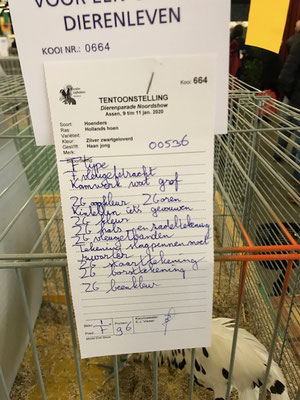 VOOR EEN
DIERENLEVEN
KOOI NR.: 0664
Kooi: 664
TENTOONSTELLING
Dierenparade Noordshow
Assen, 9 t/m 11 jan. 2020
Soort: Hoenders
Ras: Hollands hoen
Variëteit:
Kleur: Zilver zwartgeloverd
Geslacht: Haan jong
Merk:
00536
F type
F vleugeldracht
Kamwerk wat grof
ZG oogkleur ZG oren
Kinlellen iets gevouwen
ZG kleur
ZG hals en zadeltekening
ZG vleugelbanden
Tekening slagpennen mag
zwarter
ZG staarttekening
ZG borsttekening
ZG beenkleur
F
Predikaat
96